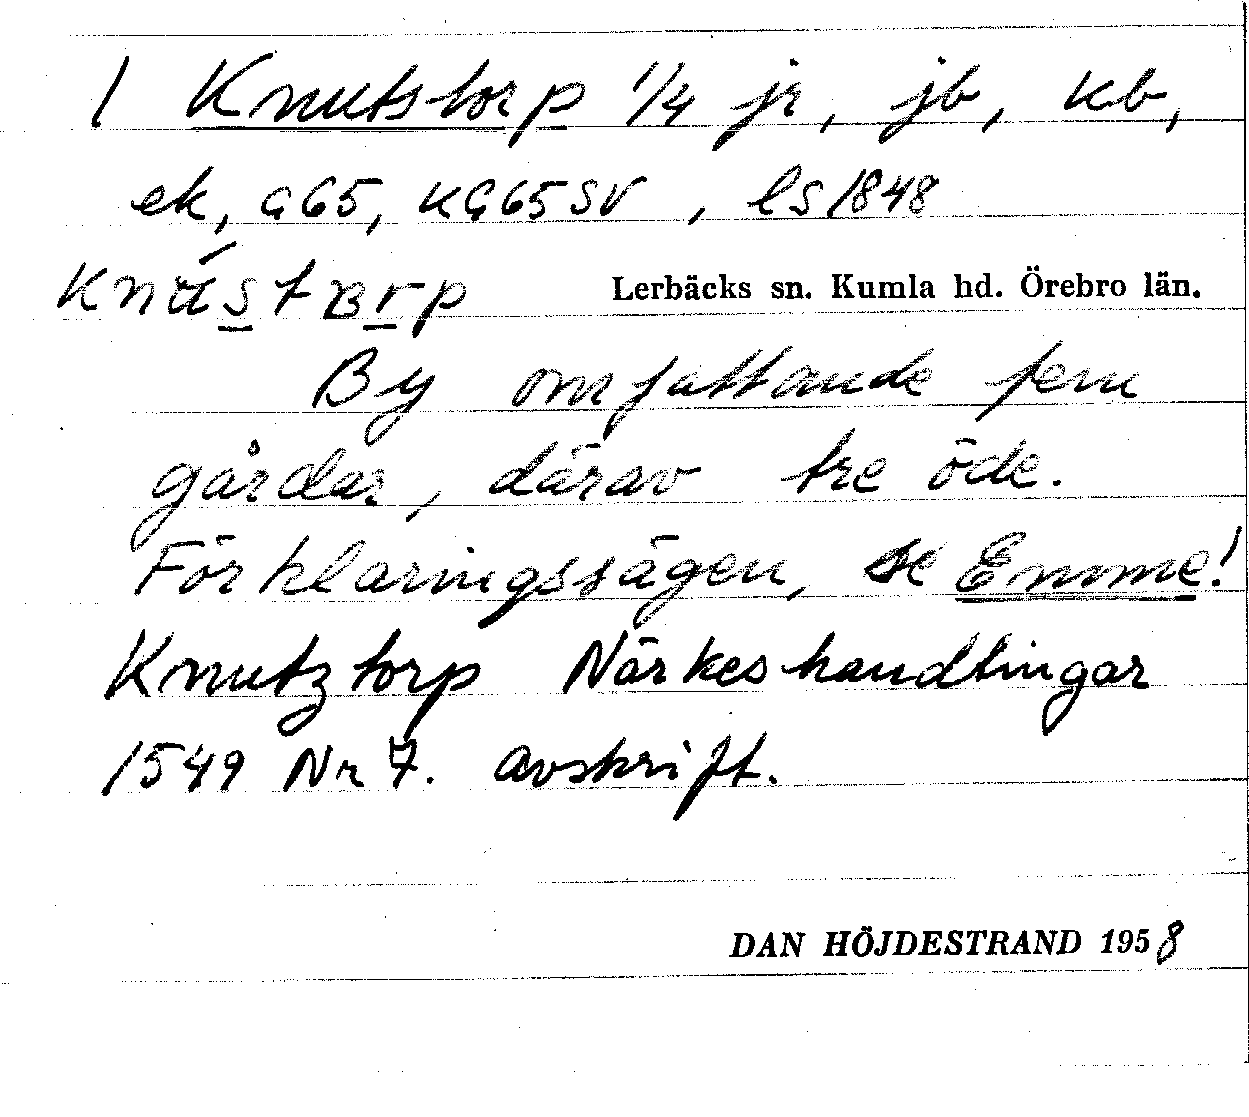 1 Knutstorp 1/4 jr, jb, kb,
ek, G65, KG65SV, ls1848
knústBrp Lerbäcks sn. Kumla hd. Örebro län.
By omfattande fem
gårdar, därav tre öde.
Förklaringssägen, se Enome!
Knutztorp Närkeshandlingar
1549 Nr 7. avskrift.
DAN HÖJDESTRAND 1958